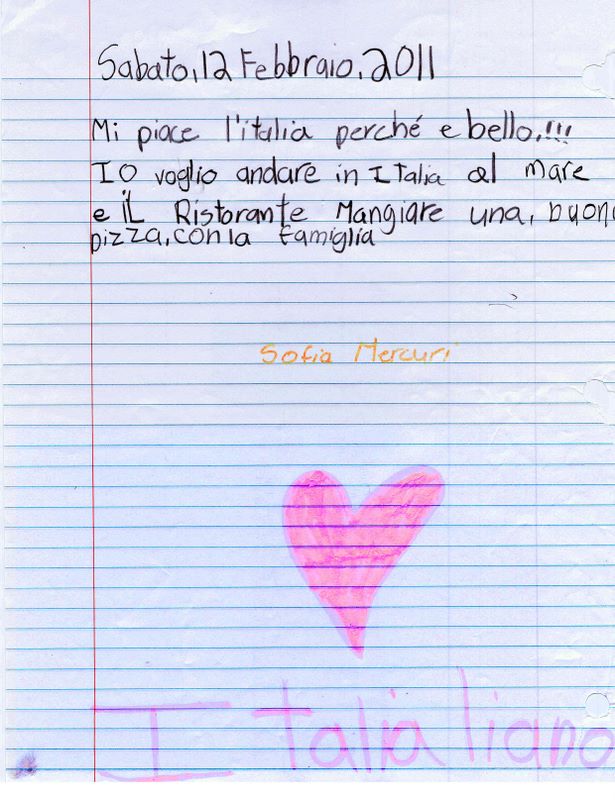 Sabato, 12 Febbraio, 2011
Mi piace l'italia perché e bello.!!!
IO voglio andare in ITalia al mare
e iL RistoranTe Mangiare una, buona
pizza, con la famiglia
Sofia Mercuri
ITalialiano